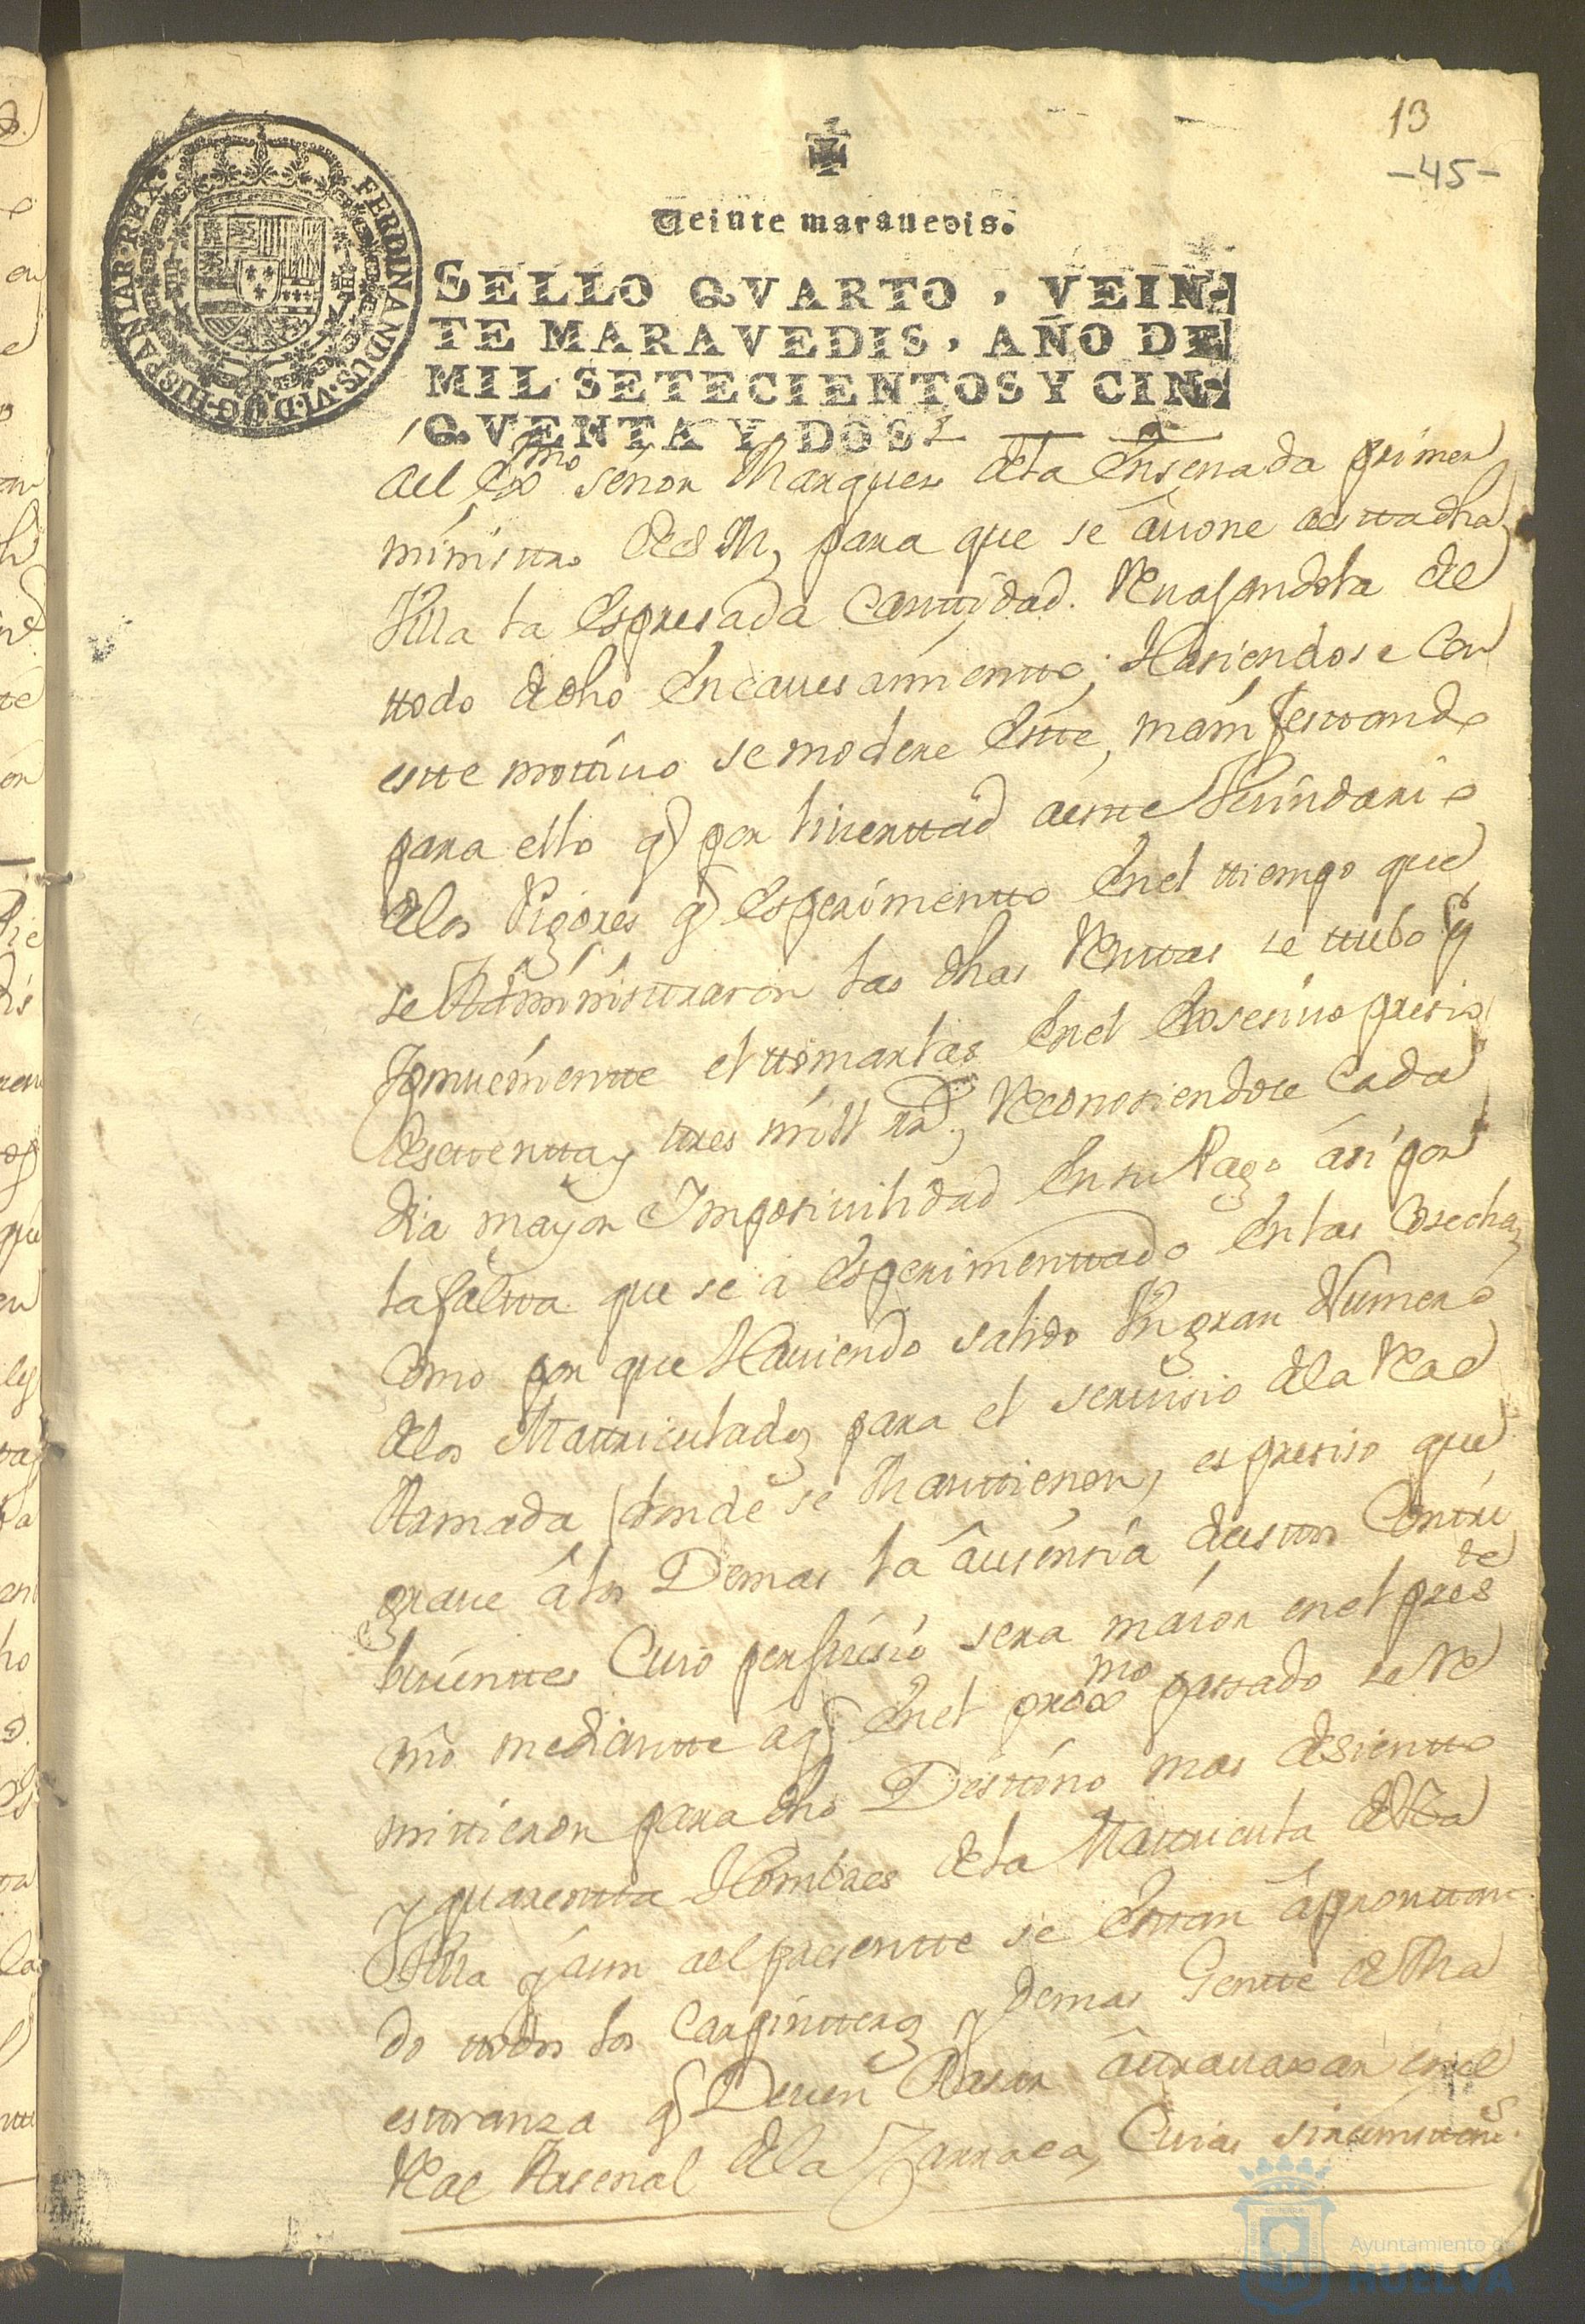 13
-45-
HISPANIAR·REX· FERDINANDUS·VI·D·G·
Veinte maravedis.
SELLO QVARTO, VEIN-
TE MARAVEDIS, AÑO DE
MIL SETECIENTOS Y CIN-
QVENTA Y DOS
del Exmo señor Marques dela Ensenada primer
ministro de S M, para que se âuone aesttadha
Villa la Espresada Canttidad. Revajandola del
ttodo de dho Encauesamientto; Hasiendose Con
este mottiuo se modere Estte, manifesttando
para ello q por livertad aestte Vesindario
delos Rigores q Esperimentto Enel ttiempo que
se Administtraron las dhas Renttas se ttubo
el ttomarlas Enel Exsesiuo presio
de settentta y ttres mill rs., Reconosiendose Cada
dia mayor Imposiuilidad En su Pago ási por
la faltta que se a Esperimenttado En las Cosechas
Como por que Hauiendo salido Un gran Numero
delos Mattriculados para el seruisio dela Real
Armada (donde se Manttienen, es presiso que
graue â los Demas la âusénsia de esttos Conttri
buientes Cuio perjuisio sera maior enel preste
año mediantte áq Enel proxmo passado se Re
mittieron para dho Desttino mas de sientto
y quarentta Hombres dela Mattricula desta
Villa y áun alpresentte se Esttan âprontan
do ttodos los Carpintteros y demas Gentte de Ma
esttranza q Deuen Pasar âttrauaxar enel
Real Arsenal dela Carraca, Cuias sircunsttans.
Ayuntamiento de
HUELVA